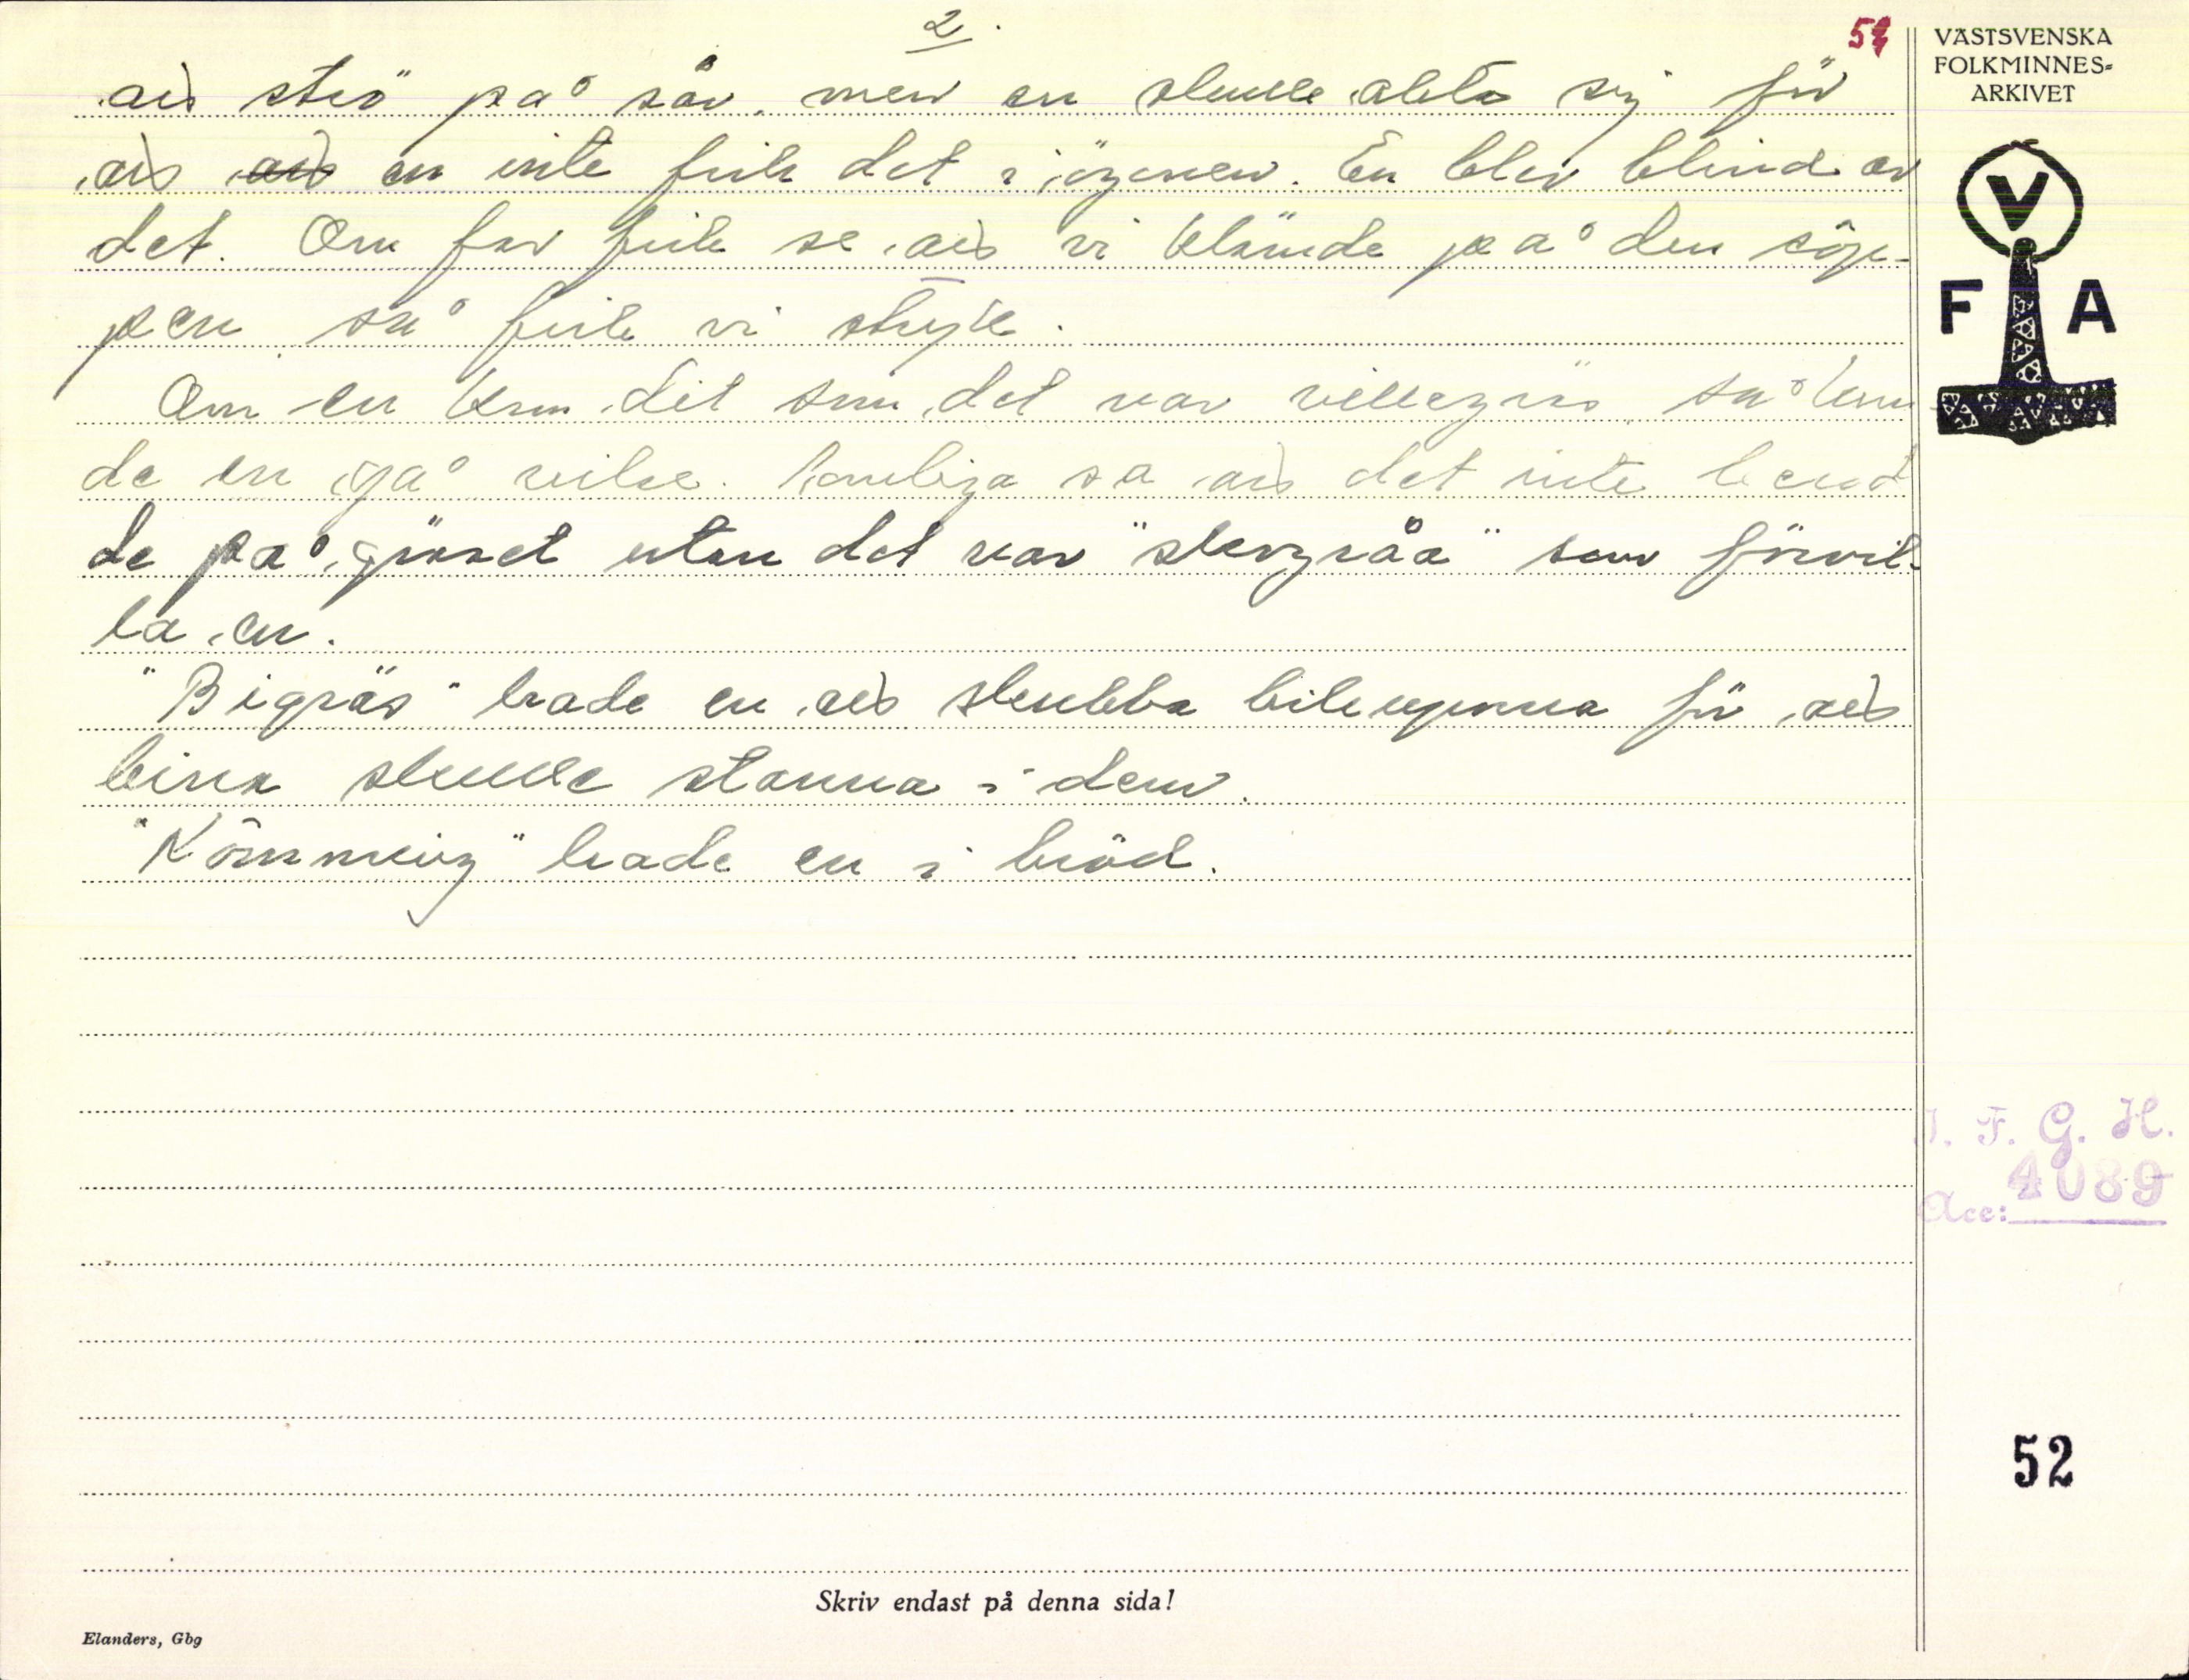 2.
54
att strö på sår, men en skulle akta sig för
att att en inte fick det i ögonen. En blev blind av
det. Om far fick se att vi klämde på den röje-
pen så fick vi stryk.
Om en kom dit som det var villegräs så kun
de en gå vilse. Somliga sa att det inte berod
de på gräset utan det var "skogsråa" som förvil-
la en.
"Bigräs" hade en att skubba bikuporna för att
bina skulle stanna i dem.
"Kömming" hade en i bröd.
VÄSTSVENSKA
FOLKMINNES-
ARKIVET
V
F A
I. F. G. H.
Acc: 4089
52
Skriv endast på denna sida!
Elanders, Gbg